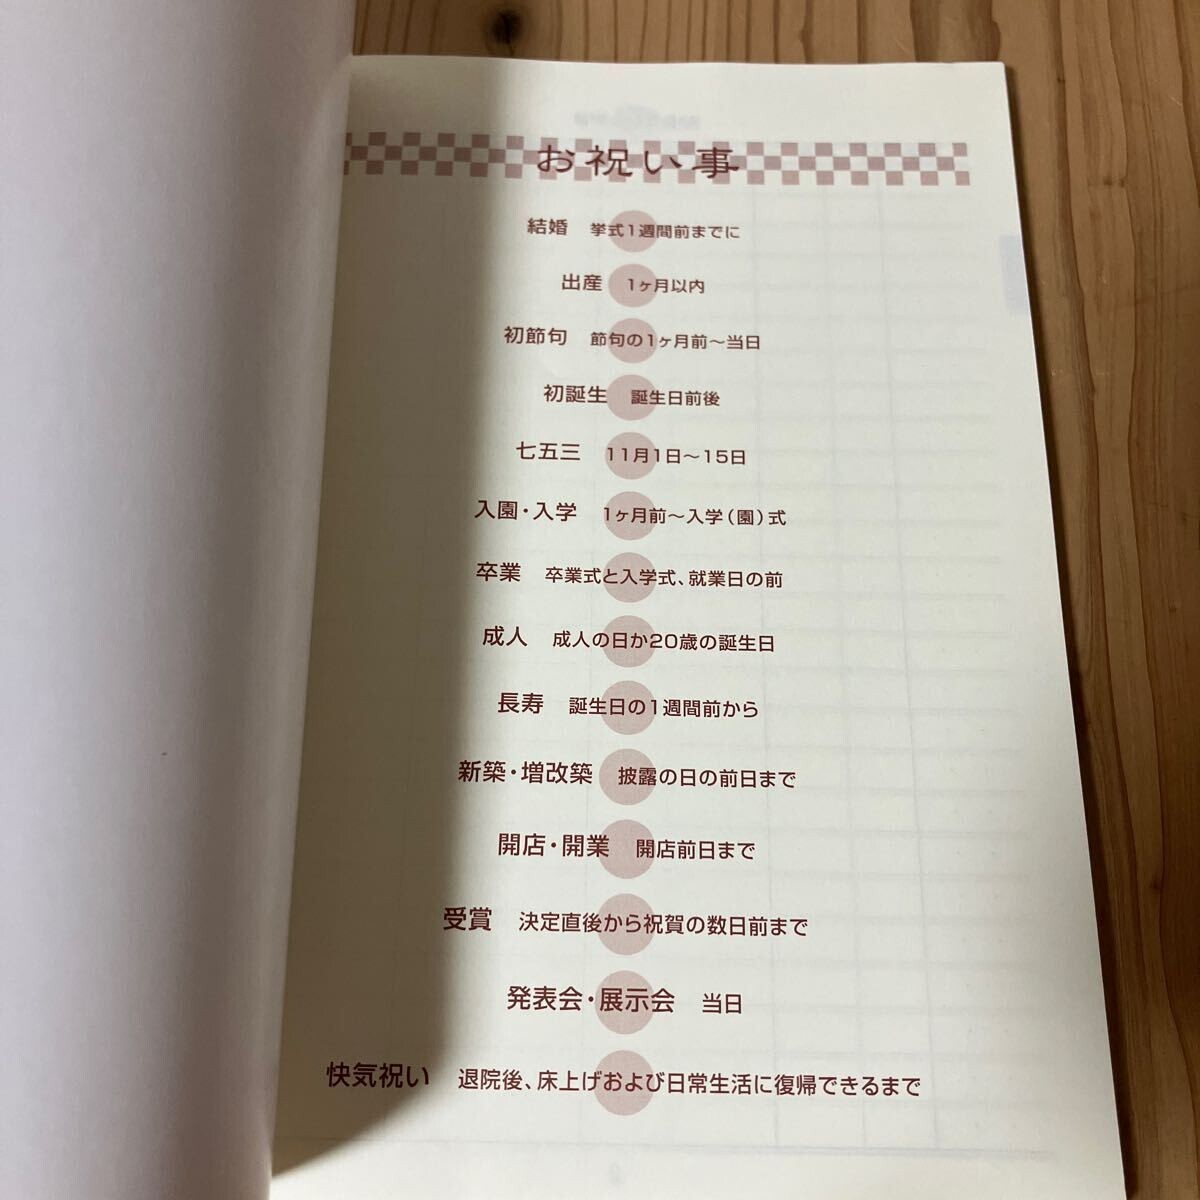 お祝い事
結婚 挙式1週間前までに
出産 1ヶ月以内
初節句 節句の1ヶ月前～当日
初誕生 誕生日前後
七五三 11月1日～15日
入園・入学 1ヶ月前～入学（園）式
卒業 卒業式と入学式、就業日の前
成人 成人の日か20歳の誕生日
長寿 誕生日の1週間前から
新築・増改築 披露の日の前日まで
開店・開業 開店前日まで
受賞 決定直後から祝賀の数日前まで
発表会・展示会 当日
快気祝い 退院後、床上げおよび日常生活に復帰できるまで